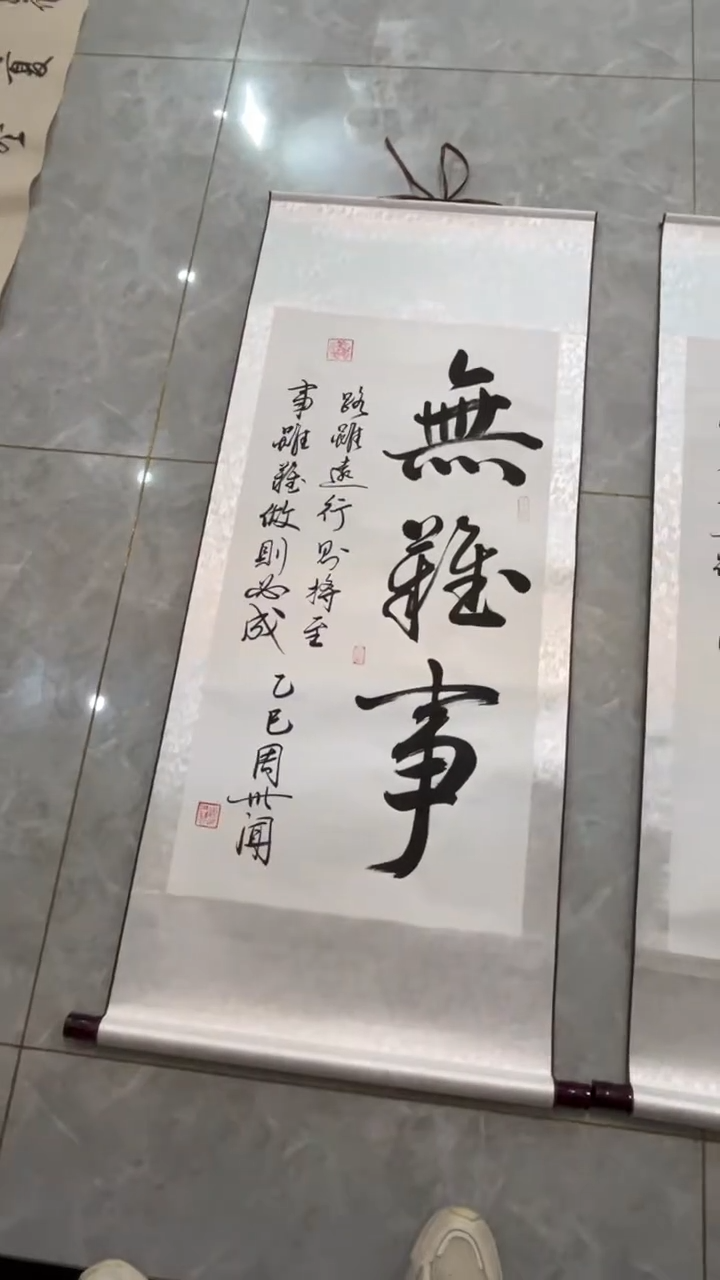 無難事
路雖遠行則將至
事雖難做則必成
乙巳周世闻
夏